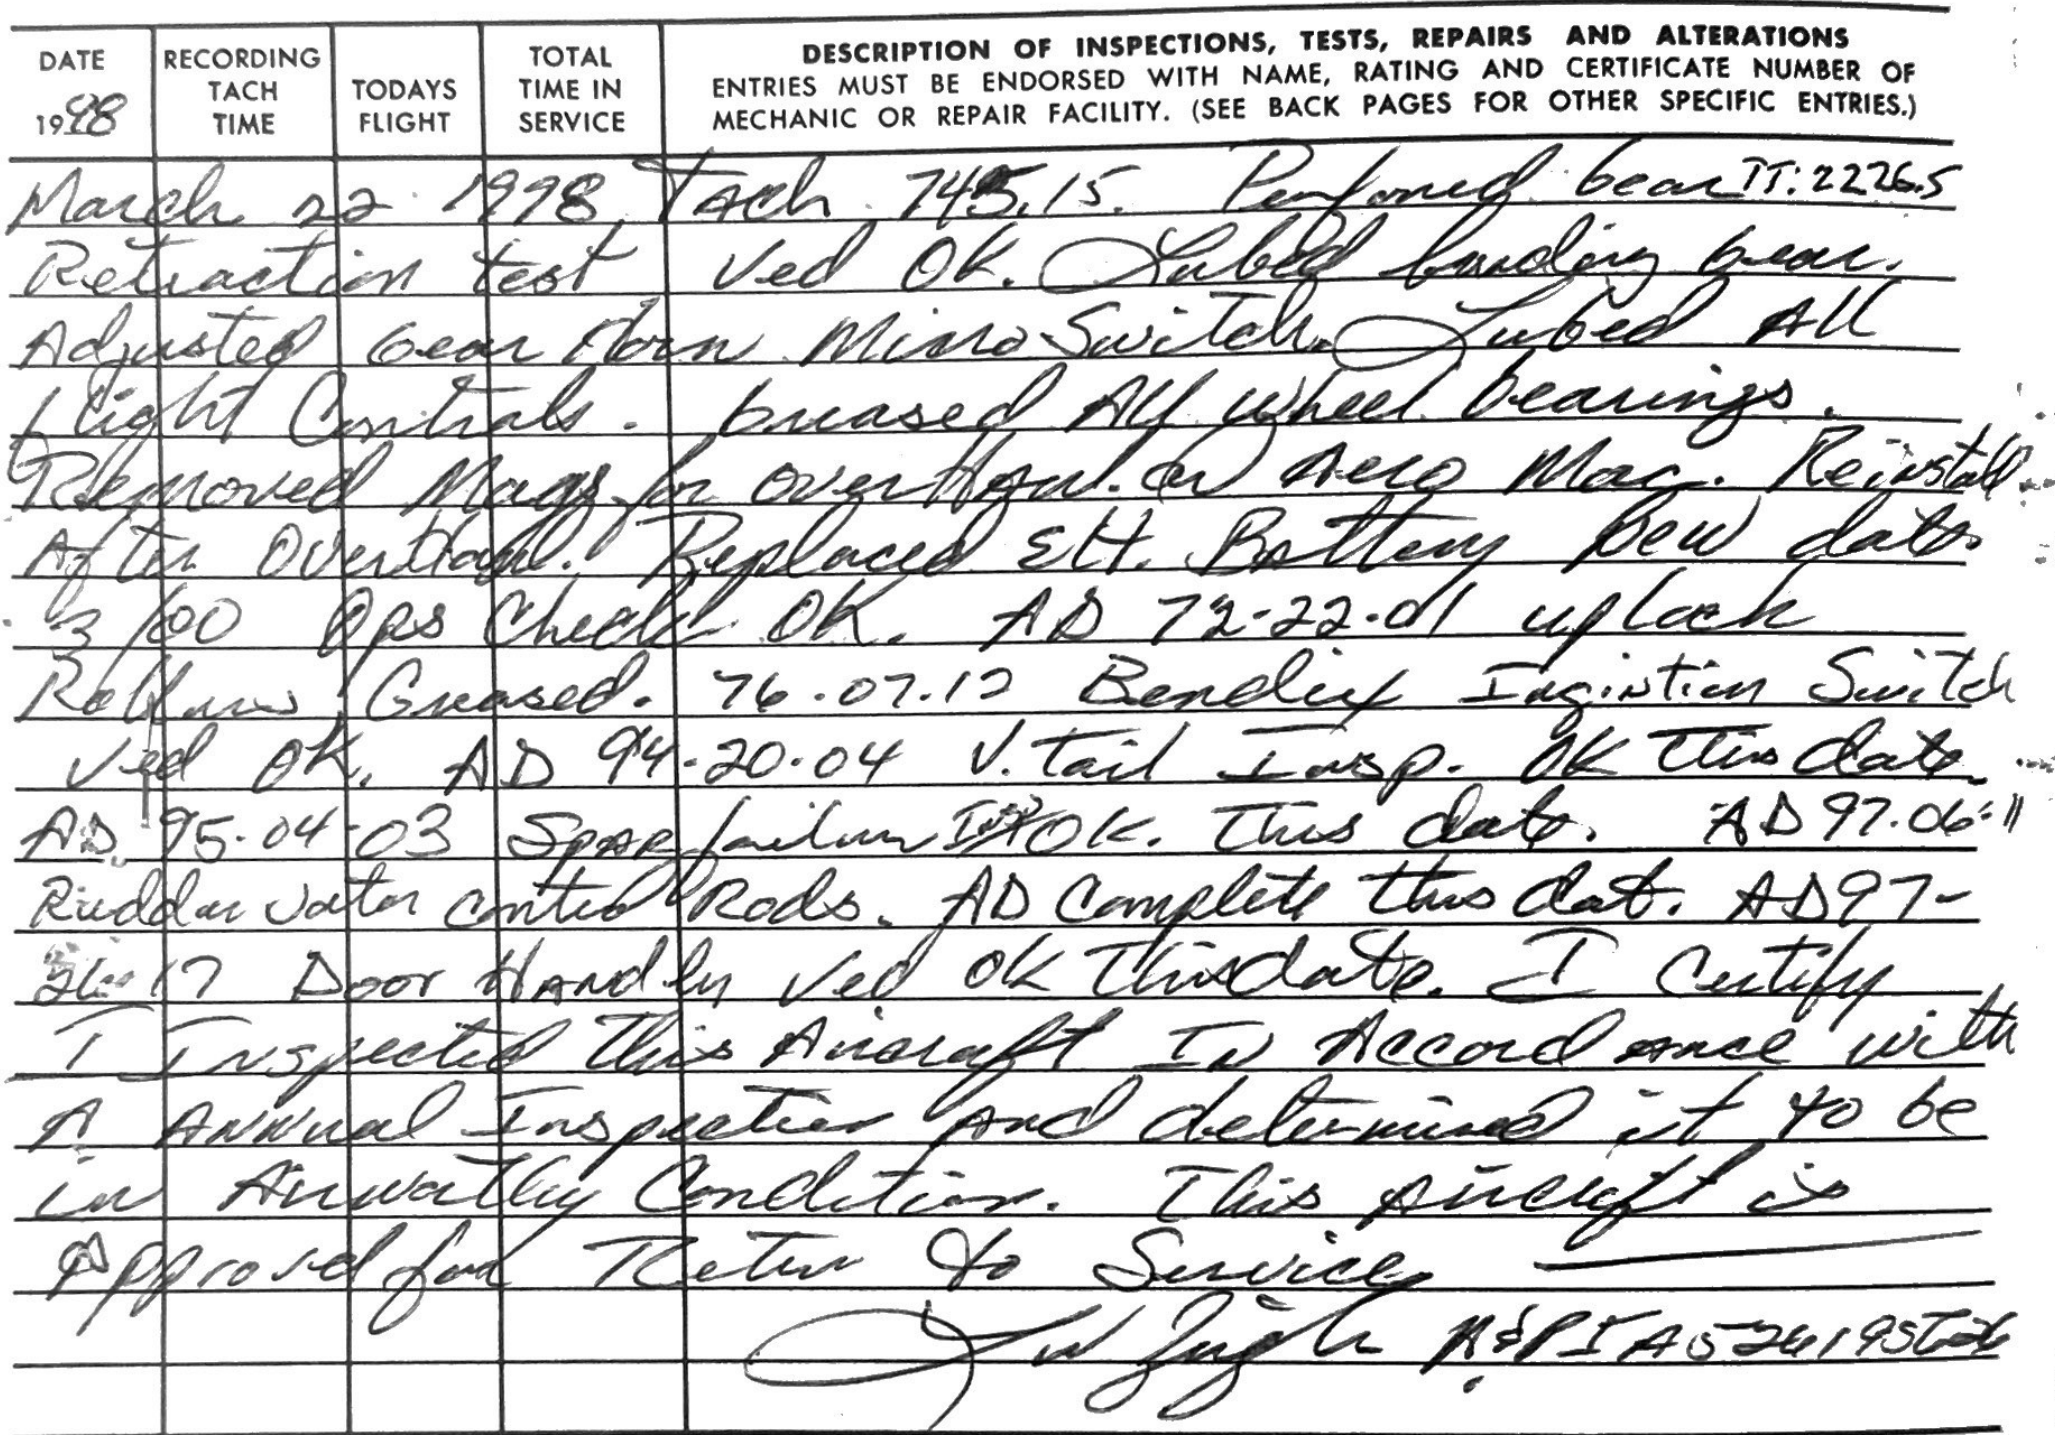 DATE 1998 RECORDING TACH TIME TODAYS FLIGHT TOTAL TIME IN SERVICE DESCRIPTION OF INSPECTIONS, TESTS, REPAIRS AND ALTERATIONS
ENTRIES MUST BE ENDORSED WITH NAME, RATING AND CERTIFICATE NUMBER OF
MECHANIC OR REPAIR FACILITY. (SEE BACK PAGES FOR OTHER SPECIFIC ENTRIES.)
March 22 1998 Tach 745.15. Perfomed Gear TT: 2226.5
Retraction test Ved OK. Lubed landing Gear.
Adjusted Gear Horn Micro Switch. Lubed All
flight Controls. Greased All wheel bearings.
Removed Mags for overHaul. Aero Mac. Reinstall
After OverHaul. Replaced Elt. Battery New date
3/00 Ops Check OK. AD 72-22-01 uplock
Rollers Greased. 76-07-12 Bendix Switch
Ved OK. AD 94-20-04 V. tail Insp. OK This date.
AD 95-04-03 SpAR failure OK. This date. AD 97-06-11
Ruddervator control Rods. AD Complete this dat. AD 97-
17 Door Ved OK This date. I Certify
I Inspected This Aircraft In Accordance with
A Annual Inspection And determined it to be
in Condition. This Aircraft is
Approved for Service
A&P IA